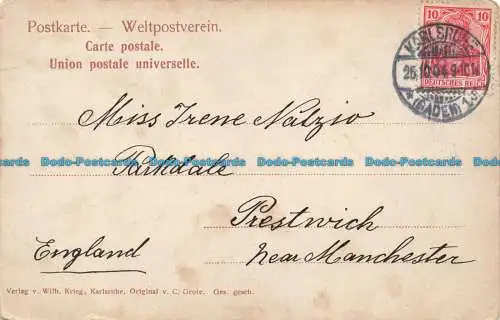 Postkarte. — Weltpostverein.
Carte postale.
Union postale universelle.
10 10
DEUTSCHES REICH
KARLSRUHE
25.10.04.9-10
(BADEN) 1.
Miss Irene Natzio
Parkdale
Prestwich
near Manchester
England
Dodo-Postcards Dodo-Postcards Dodo-Postcards Dodo-Postcards
Verlag v. Wilh. Kring, Karlsruhe, Original v. C. Grote. Ges. gesch.